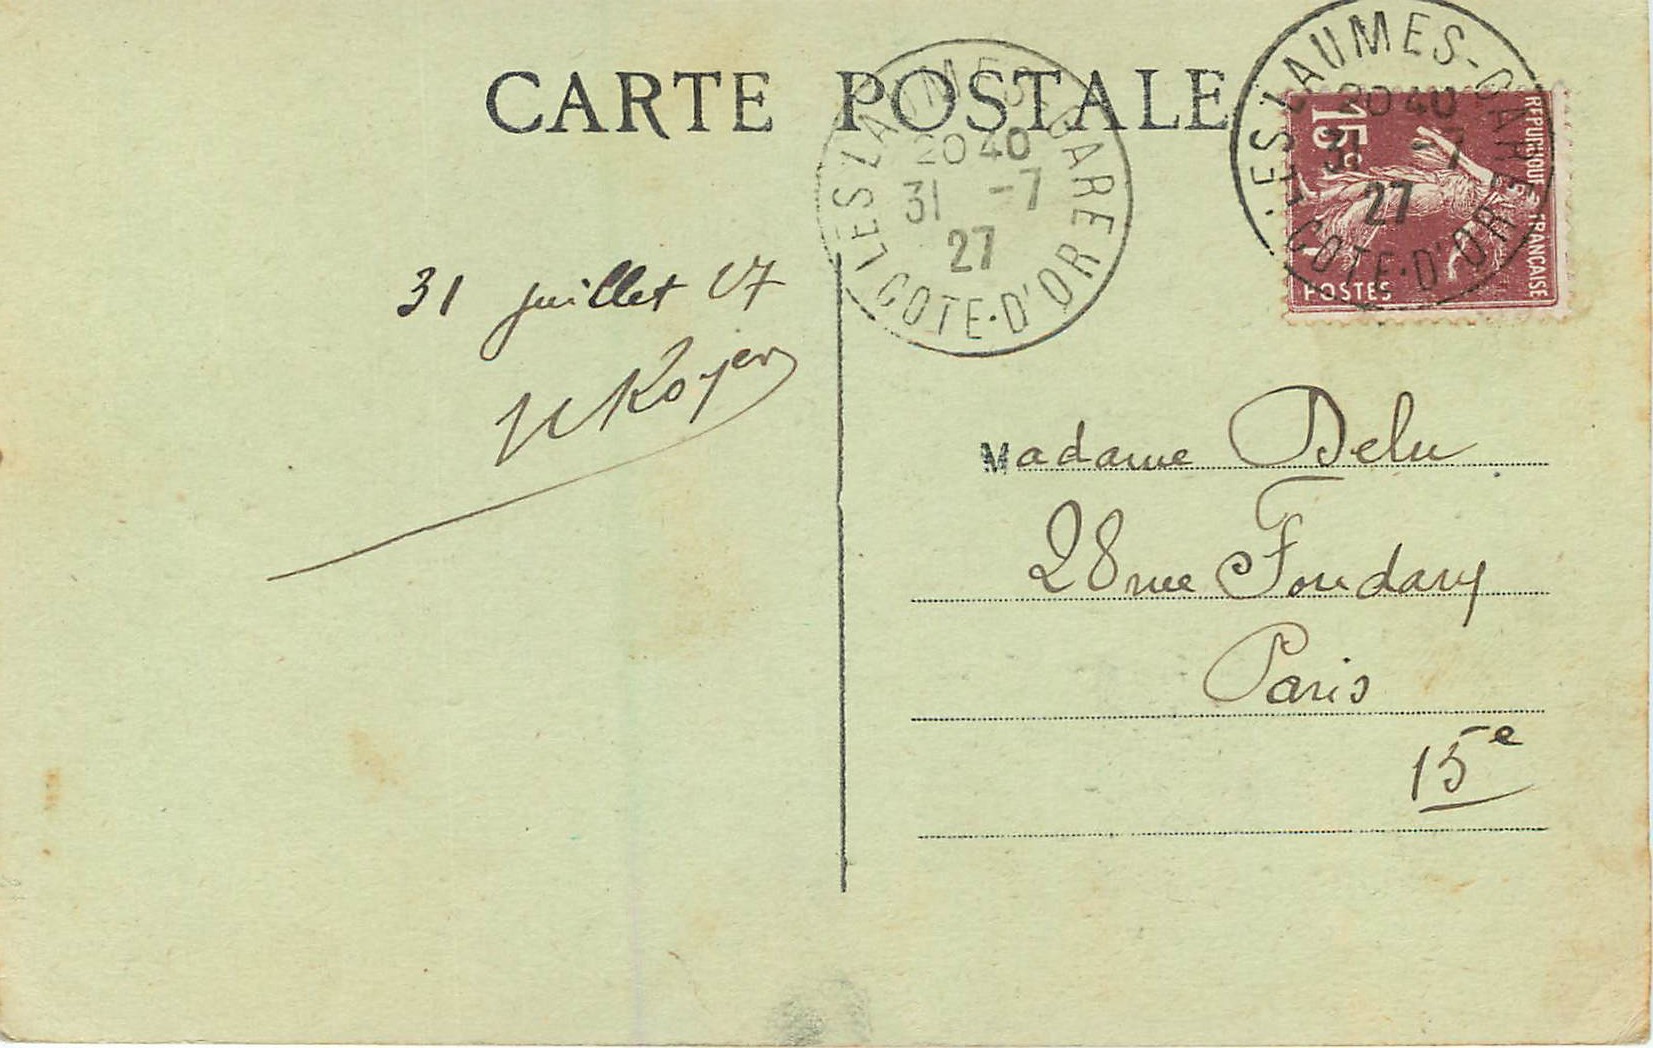 CARTE POSTALE
LES LAUMES-GARE
20 40
31 -7
27
COTE-D'OR
LES LAUMES-GARE
20 40
31 -7
27
COTE-D'OR
15c
REPUBLIQUE FRANCAISE
POSTES
31 juillet 27
Royer
Madame Delu
28 rue Fondary
Paris
15e